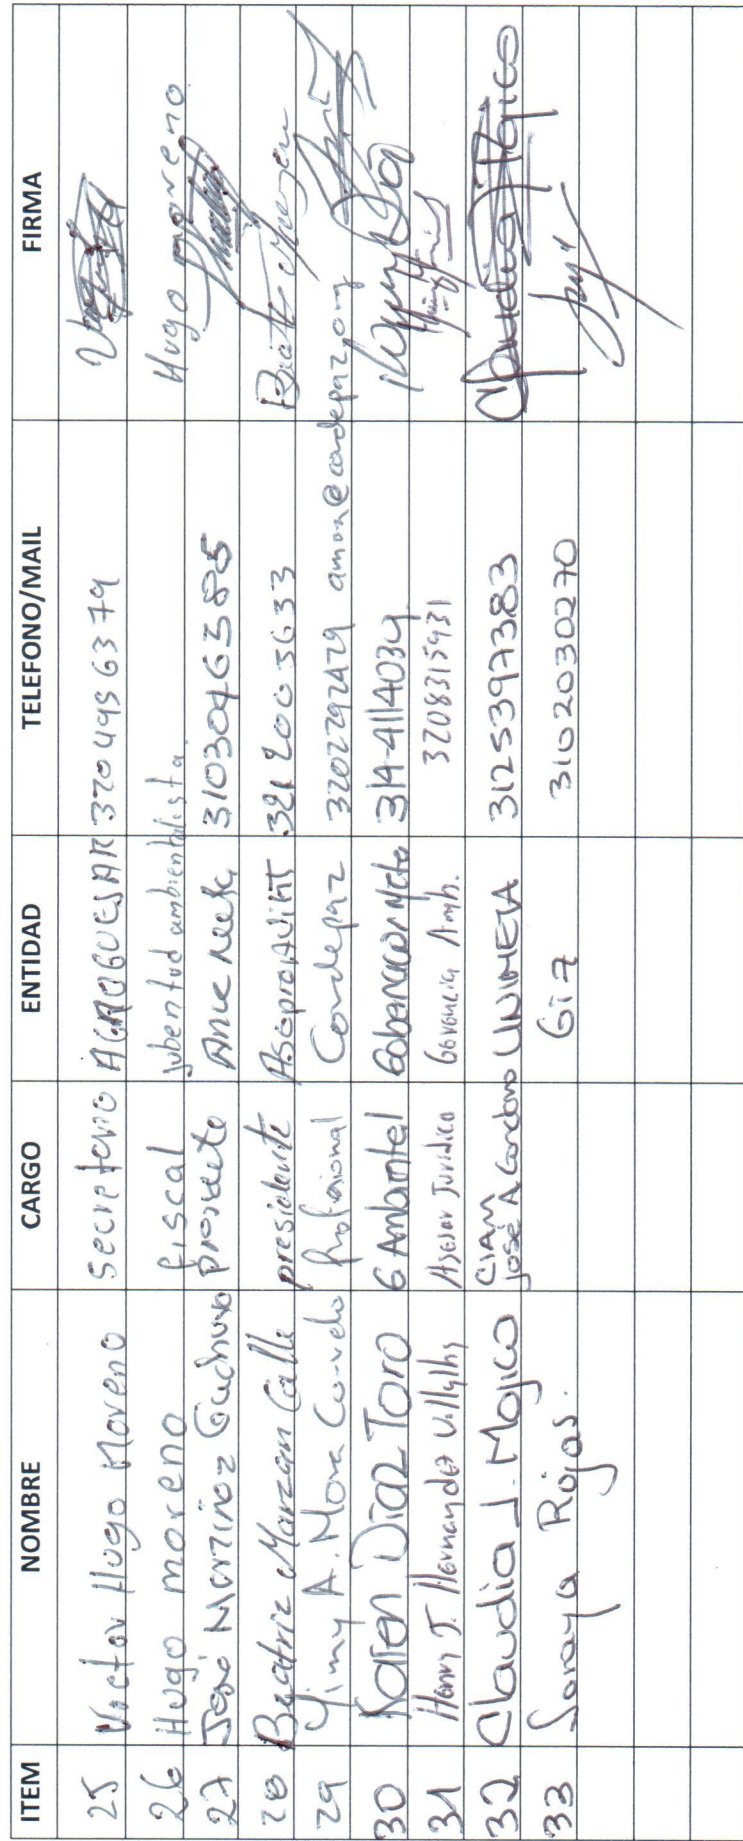 ITEM NOMBRE CARGO ENTIDAD TELEFONO/MAIL FIRMA
25 Victor Hugo Moreno Secretario AGROGUEJAR 3204936379
26 Hugo moreno fiscal jubentud ambientalista Hugo moreno
27 José Martínez 3103046585
28 Beatriz Marzan Calle presidente 3212003633
29 Yimy A. Mora Profesional Cordepaz 3202792479
30 Karen Díaz Toro G Ambiental Gobernacion Meta 314-4114034
31 Henry J. Hernandez Asesor Juridico Gerencia Amb. 3208315931
32 Claudia J. Mojica CIAM José A Candamo UNIMETA 3125397383 Claudia J Mojica
33 Soraya Rojas. Giz 3102030270